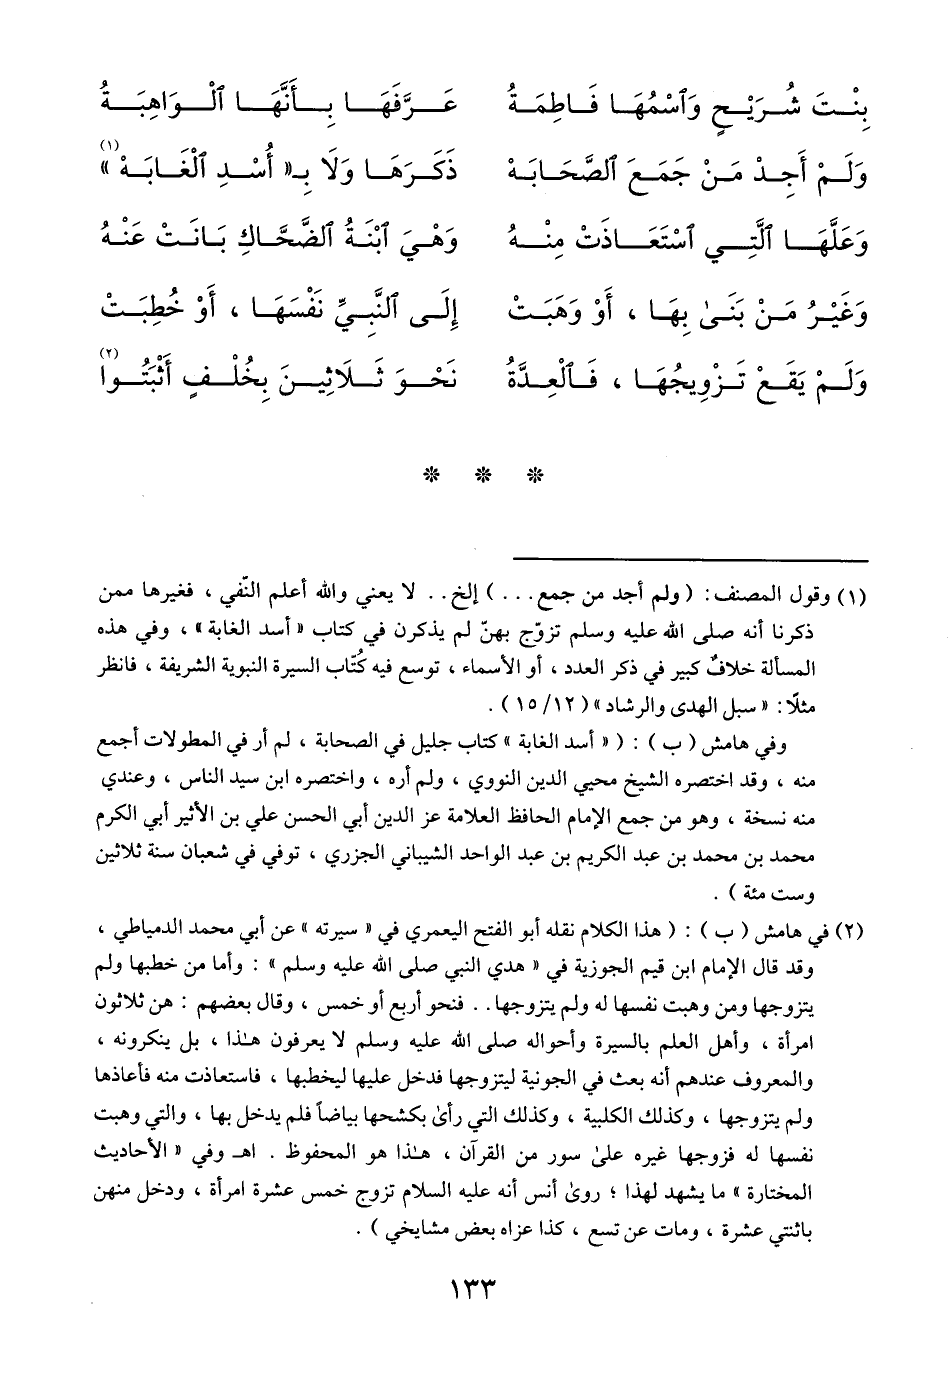 بِنْتَ شُرَيْحٍ وَٱسْمُهَا فَاطِمَةُ عَرَّفَهَا بِأَنَّهَا ٱلْوَاهِبَةُ
وَلَمْ أَجِدْ مَنْ جَمَعَ ٱلصَّحَابَهْ ذَكَرَهَا وَلَا بِـ« أُسْدِ ٱلْغَابَهْ »(١)
وَعَلَّهَا ٱلَّتِي ٱسْتَعَاذَتْ مِنْهُ وَهْيَ ٱبْنَةُ ٱلضَّحَّاكِ بَانَتْ عَنْهُ
وَغَيْرُ مَنْ بَنَىٰ بِهَا ، أَوْ وَهَبَتْ إِلَى ٱلنَّبِيِّ نَفْسَهَا ، أَوْ خُطِبَتْ
وَلَمْ يَقَعْ تَزْوِيجُهَا ، فَٱلْعِدَّةُ نَحْوَ ثَلَاثِينَ بِخُلْفٍ أَثْبَتُوا(٢)
* * *
(١) وقول المصنف: ( ولم أجد من جمع . . . ) إلخ . . لا يعني والله أعلم النّفي ، فغيرها ممن
ذكرنا أنه صلى الله عليه وسلم تزوّج بهنّ لم يذكرن في كتاب « أسد الغابة » ، وفي هذه
المسألة خلافٌ كبير في ذكر العدد ، أو الأسماء ، توسع فيه كُتّاب السيرة النبوية الشريفة ، فانظر
مثلًا: « سبل الهدى والرشاد » ( ١٢/ ١٥ ) .
وفي هامش ( ب ) : ( « أسد الغابة » كتاب جليل في الصحابة ، لم أر في المطولات أجمع
منه ، وقد اختصره الشيخ محيي الدين النووي ، ولم أره ، واختصره ابن سيد الناس ، وعندي
منه نسخة ، وهو من جمع الإمام الحافظ العلامة عز الدين أبي الحسن علي بن الأثير أبي الكرم
محمد بن محمد بن عبد الكريم بن عبد الواحد الشيباني الجزري ، توفي في شعبان سنة ثلاثين
وست مئة ) .
(٢) في هامش ( ب ) : ( هذا الكلام نقله أبو الفتح اليعمري في « سيرته » عن أبي محمد الدمياطي ،
وقد قال الإمام ابن قيم الجوزية في « هدي النبي صلى الله عليه وسلم » : وأما من خطبها ولم
يتزوجها ومن وهبت نفسها له ولم يتزوجها . . فنحو أربع أو خمس ، وقال بعضهم : هن ثلاثون
امرأة ، وأهل العلم بالسيرة وأحواله صلى الله عليه وسلم لا يعرفون هـٰذا ، بل ينكرونه ،
والمعروف عندهم أنه بعث في الجونية ليتزوجها فدخل عليها ليخطبها ، فاستعاذت منه فأعاذها
ولم يتزوجها ، وكذلك الكلبية ، وكذلك التي رأىٰ بكشحها بياضاً فلم يدخل بها ، والتي وهبت
نفسها له فزوجها غيره علىٰ سور من القرآن ، هـٰذا هو المحفوظ . اهـ وفي « الأحاديث
المختارة » ما يشهد لهذا ؛ روىٰ أنس أنه عليه السلام تزوج خمس عشرة امرأة ، ودخل منهن
باثنتي عشرة ، ومات عن تسع ، كذا عزاه بعض مشايخي ) .
١٣٣